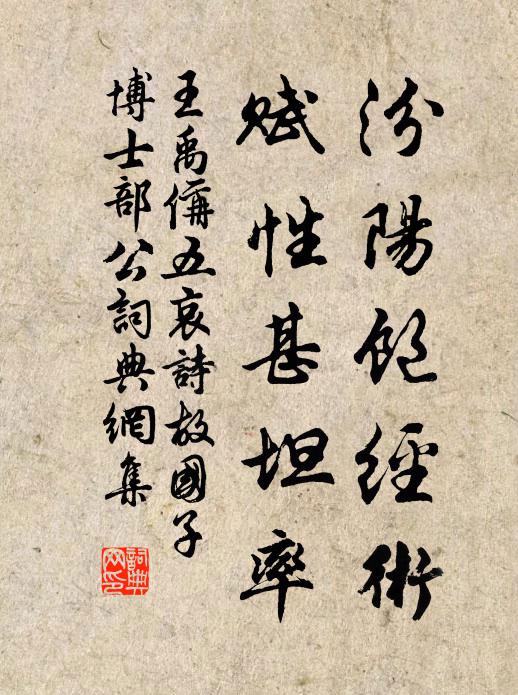 汾陽飽經術
賦性甚坦率
王禹偁五哀詩故國子
博士部公詞典網集
詞典網印